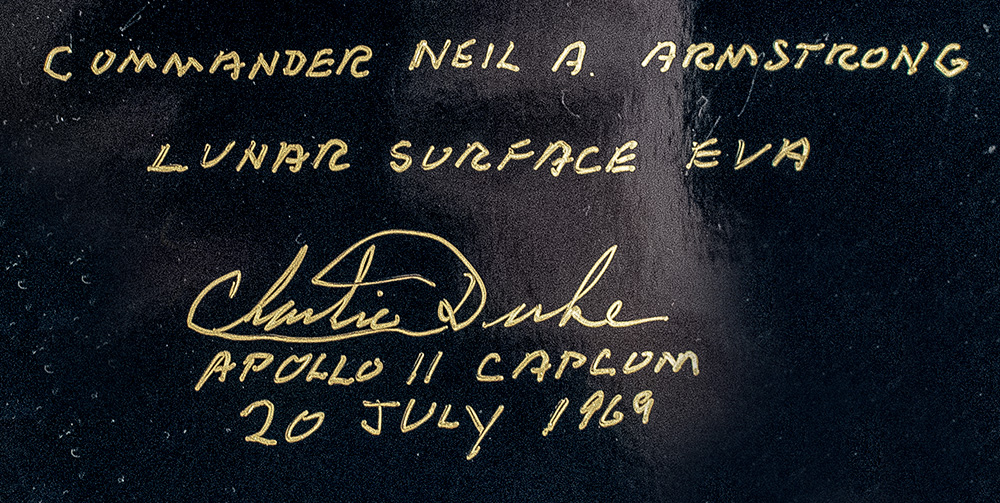 COMMANDER NEIL A. ARMSTRONG
LUNAR SURFACE EVA
Charlie Duke
APOLLO 11 CAPCOM
20 JULY 1969